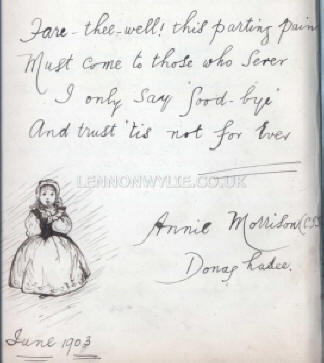 Fare-thee-well! this parting pain
Must come to those who sever
I only say 'Good-bye'
And trust 'tis not for Ever
LENNONWYLIE.CO.UK
Annie Morrison
Donaghadee.
June 1903